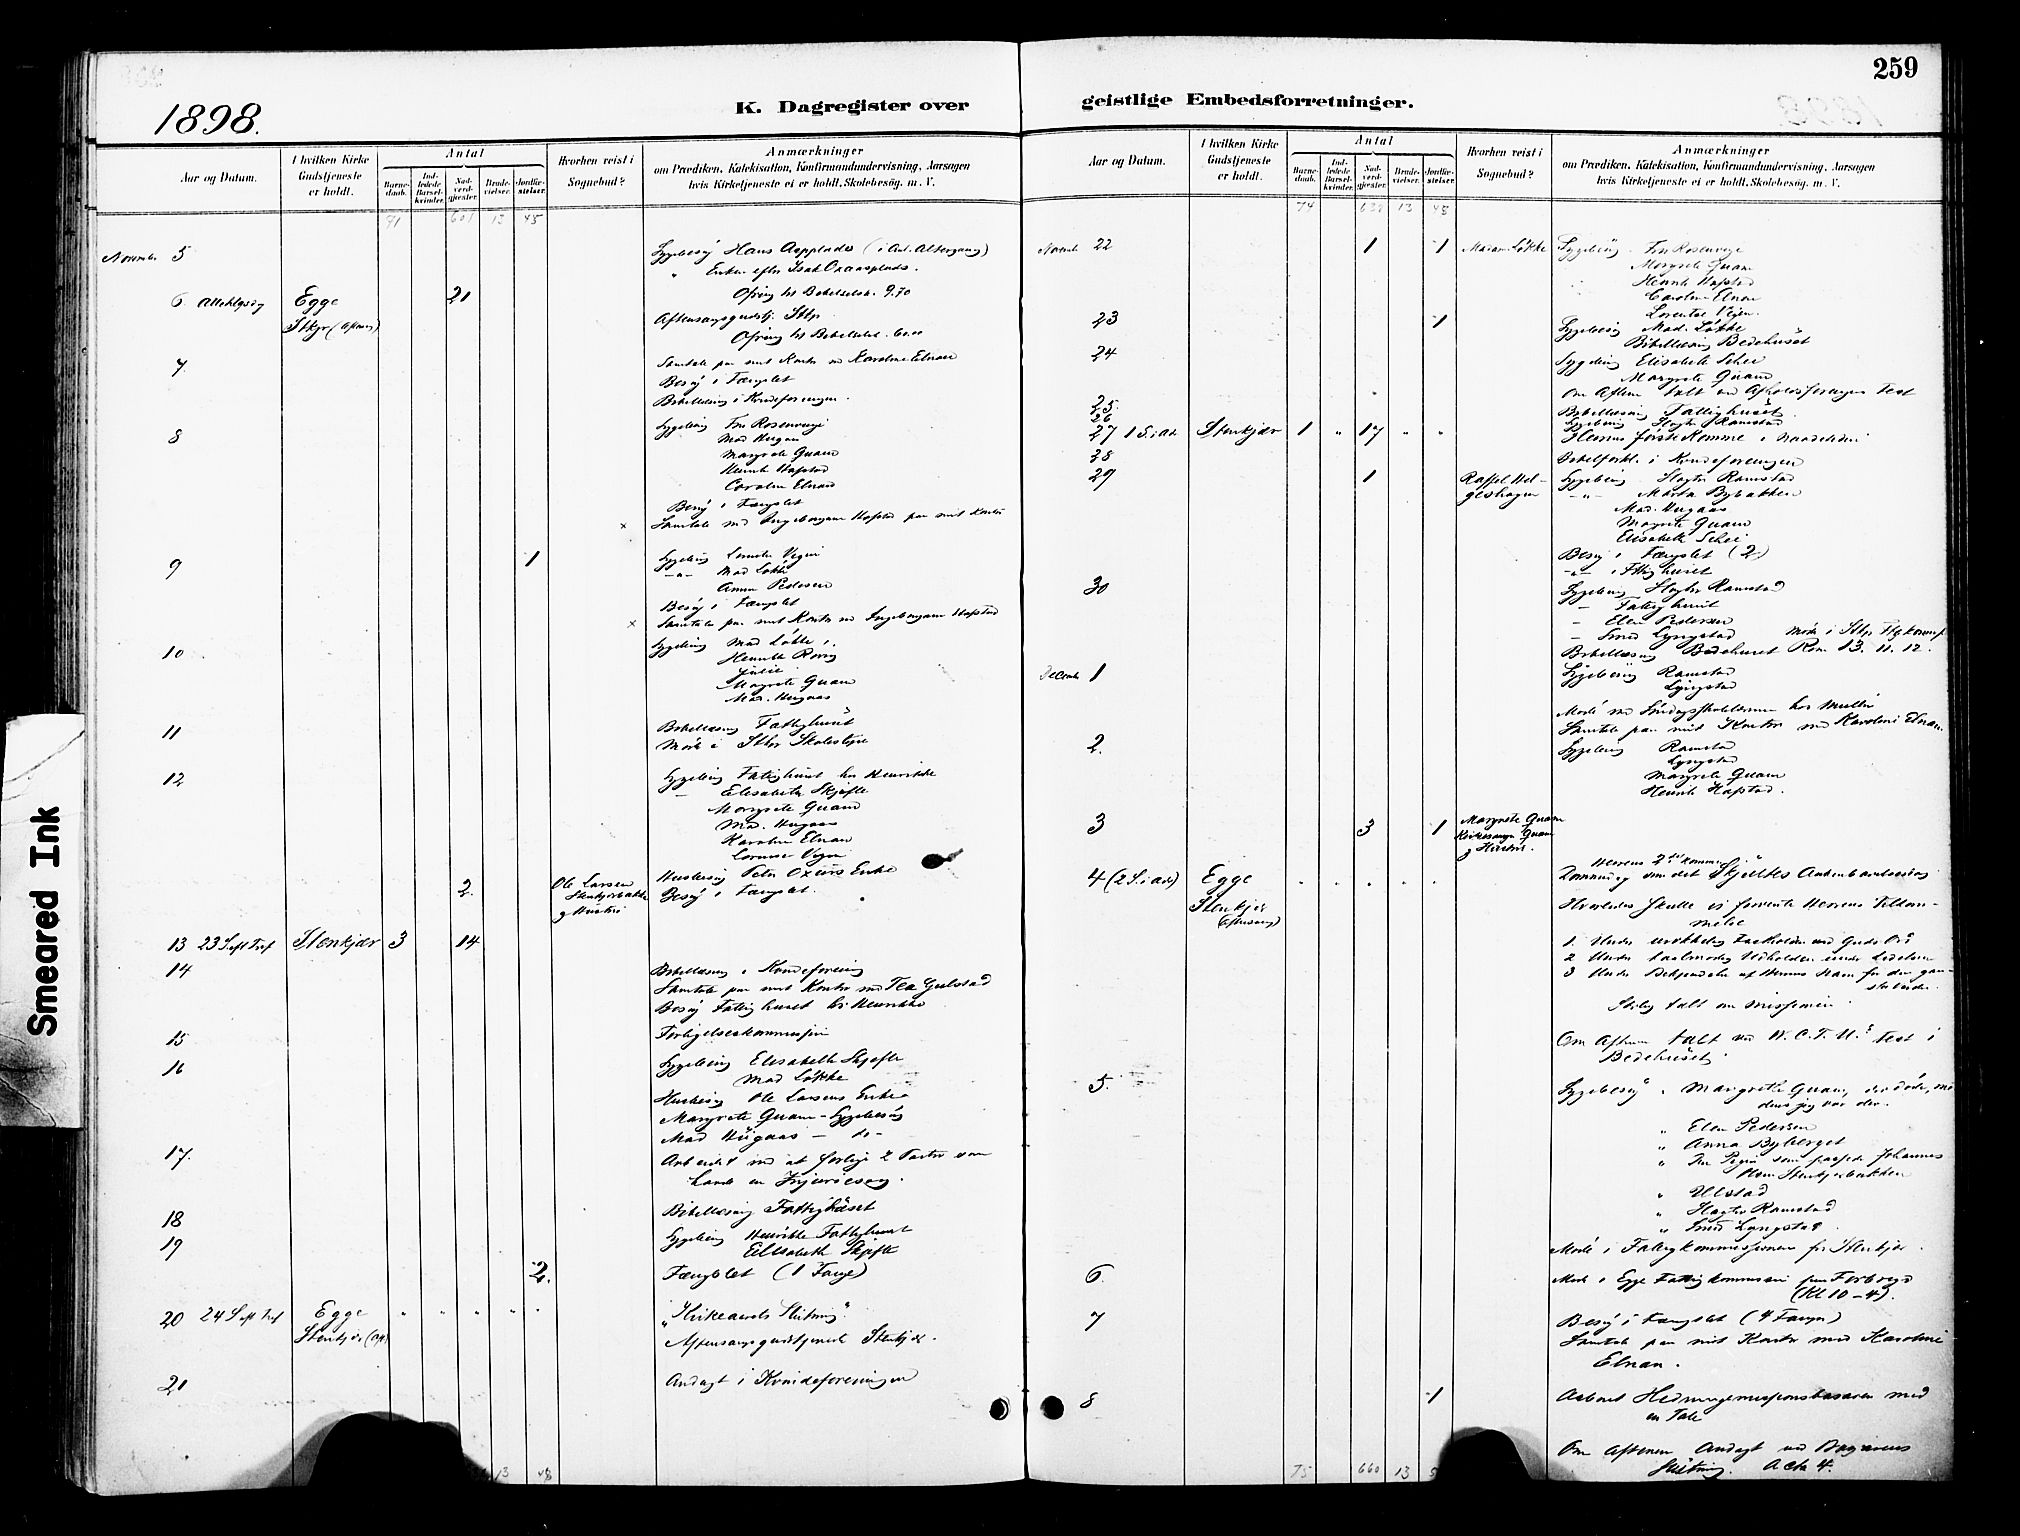 259
1898.
K. Dagregister over
geistlige Embedsforretninger.
Aar og Datum.
I hvilken Kirke Gudstjeneste er holdt.
Antal
Barne-daab.
Ind-ledede Barsel-kvinder.
Nad-verd-gjester.
Brude-vielser.
Jordfæ-stelser.
Hvorhen reist i Sognebud?
Anmærkninger
om Prædiken, Katekisation, Konfirmandundervisning, Aarsagen
hvis Kirketjeneste ei er holdt, Skolebesøg. m. V.
71 601 13 45
November 5
Sygebesøg Hans
" Enken efter Isak
Ofring til 9.70
6. Allehlgsdg Egge 21
Stkjr (Aftens)
Aftensangsgudstj. Stkjr
7.
Samtale paa mit Kontor m Karoline Elnan
Besøg i Fængslet
Bibellæsning i Kvindeforeningen.
8
Sygebesøg Fru Rosenvinge
Mad Hugaas
Margrete Quam
Henrik Hafstad
Caroline Elnan
Besøg i Fængslet
x Samtale med Ingeborganna Hafstad paa mit Kontor
9 1
Mad Løkke
Anna Pedersen
Besøg i Fængslet
x Samtale paa mit Kontor m Ingeborganna Hafstad
10
Sygebesøg Mad Løkke,
Julie
Margrete Quam
Mad. Hugaas
11
Bibellæsning Fattighuset
Møde i Stkjr Skolestyre
12
Sygebesøg Fattighuset hos Henrikke
Elisabeth Skjefte
Margrete Quam
Mad. Hugaas
Karoline Elnan
2. Ole Larsen Stenkjerbakke og Hustru
Besøg i Fængslet.
13 23 S. eft Tref Stenkjær 3 14
14
Bibellæsning i Kvindeforening
Samtale paa mit Kontor med Tea Gulstad
Besøg Fattighuset hos Henrikke
15
Forligelseskommission
16
Sygebesøg Elisabeth Skjefte
Mad Løkke
Husbesøg Ole Larsens Enke
Margrete Quam - Sygebesøg
Mad Hugaas - do -
17.
Arbeidet med at forlige 2 Parter om
Lande en Injuriesag.
18
Bibellæsning Fattighuset
19
Sygebesøg Henrikke Fattighuset
Elisabeth Skjefte
2. Fængslet (1 Fange)
20 24 S. eft Tref Egge " " " " "
Stenkjær (Aft)
„Kirkeaarets Slutning"
Aftensangsgudstjeneste Stenkjær.
21
Andagt i Kvindeforeningen
13 48
Aar og Datum.
I hvilken Kirke Gudstjeneste er holdt.
Antal
Barne-daab.
Ind-ledede Barsel-kvinder.
Nad-verd-gjester.
Brude-vielser.
Jordfæ-stelser.
Hvorhen reist i Sognebud?
Anmærkninger
om Prædiken, Katekisation, Konfirmandundervisning, Aarsagen
hvis Kirketjeneste ei er holdt, Skolebesøg. m. V.
74 638 13 48
Novemb 22 1 1 Madam Løkke
Sygebesøg Fru Rosenvinge
Margrete Quam
Henrik Hafstad
Caroline Elnan
23 1
Sygebesøg Mad. Løkke
Bibellæsning Bedehuset
24
Sygebesøg Elisabeth Schei
Margrete Quam
Om Aftenen talt ved Afholdsforeningens Fest
25.
Bibellæsning Fattighuset
26
Sygebesøg Slagter Ramstad
27 1 S. i Ad. Stenkjær 1 " 17 " "
Herrens første Komme i Naadetiden
28
Bibelforkl. i Kvindeforeningen
29 1
Sygebesøg Slagter Ramstad
- " - Marta Bybakken
Mad. Hugaas
Margrete Quam
Elisabeth Schei
Besøg i Fængslet (2)
- " - i Fattighuset
30
Sygebesøg Slagter Ramstad
- Fattighuset
- Elen Pedersen
- Smed Lyngstad
Bibellæsning Bedehuset Rom. 13. 11. 12.
Decemb 1
Sygebesøg Ramstad
Lyngstad
Samtale paa mit Kontor med Karoline Elnan
2.
Sygebesøg Ramstad
Lyngstad
Margrete Quam
Henrik Hafstad.
3 3 1 Margrete Quam
Kirkesanger Quam
og Hustru.
4 (2 S. i Ad) Egge " " " " "
Stenkjær
(Aftensang)
Herrens 2det komme
Hvorledes skulle vi forvente Herrens Tilkommelse
1. Under urokkelig Fastholden ved Guds Ord
2 Under taalmodig Udholden under Lidelser
3 Under Bekjendelse af Herrens Navn for den ganske Verden.
talt om Missionen
Om Aftenen talt ved W. C. T. U.s Fest i
Bedehuset.
5.
Sygebesøg " Margrethe Quam, der døde, medens jeg var der.
" Elen Pedersen
" Anna Byberget
" Ulstad
" Slagter Ramstad
" Smed Lyngstad.
Møde i Fattigkommissionen for Stenkjær.
6.
Møde i Egge Fattigkommission paa Forbregd
(Kl 10 - 4).
7
Besøg i Fængslet (4 Fanger)
Samtale paa mit Kontor med Karoline
Elnan.
8 1
Aabnet Hedningemissionsbasaren med
en Tale
Om Aftenen Andagt ved Basarens
Slutning. Acta 4.
75 660 13
Smeared Ink